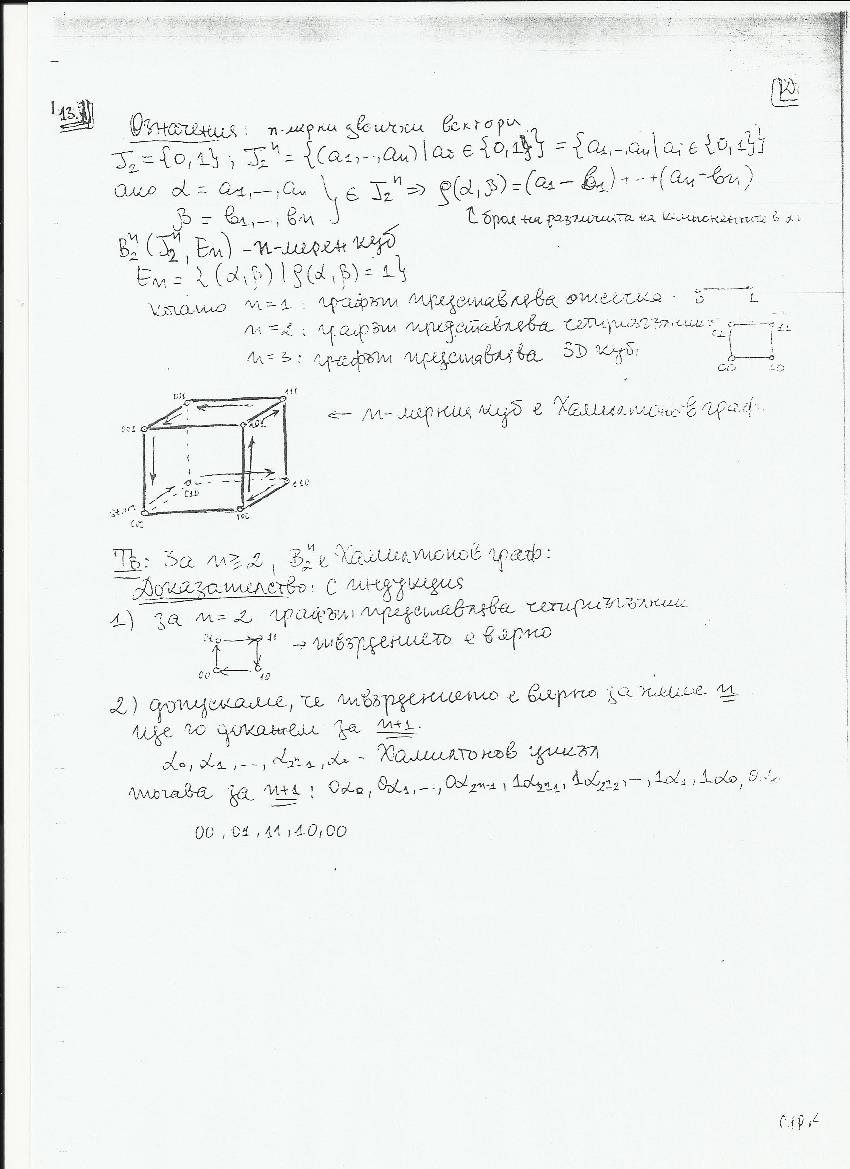 13.
Означения: n-мерни двоични вектори
J₂ = {0,1} ; J₂ⁿ = {(a₁,..,aₙ) | aᵢ ∈ {0,1}} = {a₁,..,aₙ | aᵢ ∈ {0,1}}
ако α = a₁,..,aₙ } ∈ J₂ⁿ ⇒ ρ(α,β) = (a₁ - b₁) + .. + (aₙ - bₙ)
β = b₁,..,bₙ
броя на на компонентите в α
B₂ⁿ (J₂ⁿ, Eₙ) - n-мерен куб
Eₙ = {(α,β) | ρ(α,β) = 1}
когато n=1 : графът представлява отсечка 0 1
n=2 : графът представлява четириъгълник 11
n=3 : графът представлява 3D куб. 00 10
011 111
001 101
← n-мерния куб е Хамилтонов граф.
010 110
start
000 100
Тв: За n ≥ 2, B₂ⁿ е Хамилтонов граф:
Доказателство: с индукция
1) за n=2 графът представлява четириъгълник
11
→ твърдението е вярно
00 10
2) допускаме, че твърдението е вярно за някое n
ще го докажем за n+1.
α₀, α₁, .., α₂ⁿ₋₁, α₀ - Хамилтонов цикъл
тогава за n+1 : 0α₀, 0α₁, .., 0α₂ⁿ₋₁, 1α₂ⁿ₋₁, 1α₂ⁿ₋₂, .., 1α₁, 1α₀,
00, 01, 11, 10, 00